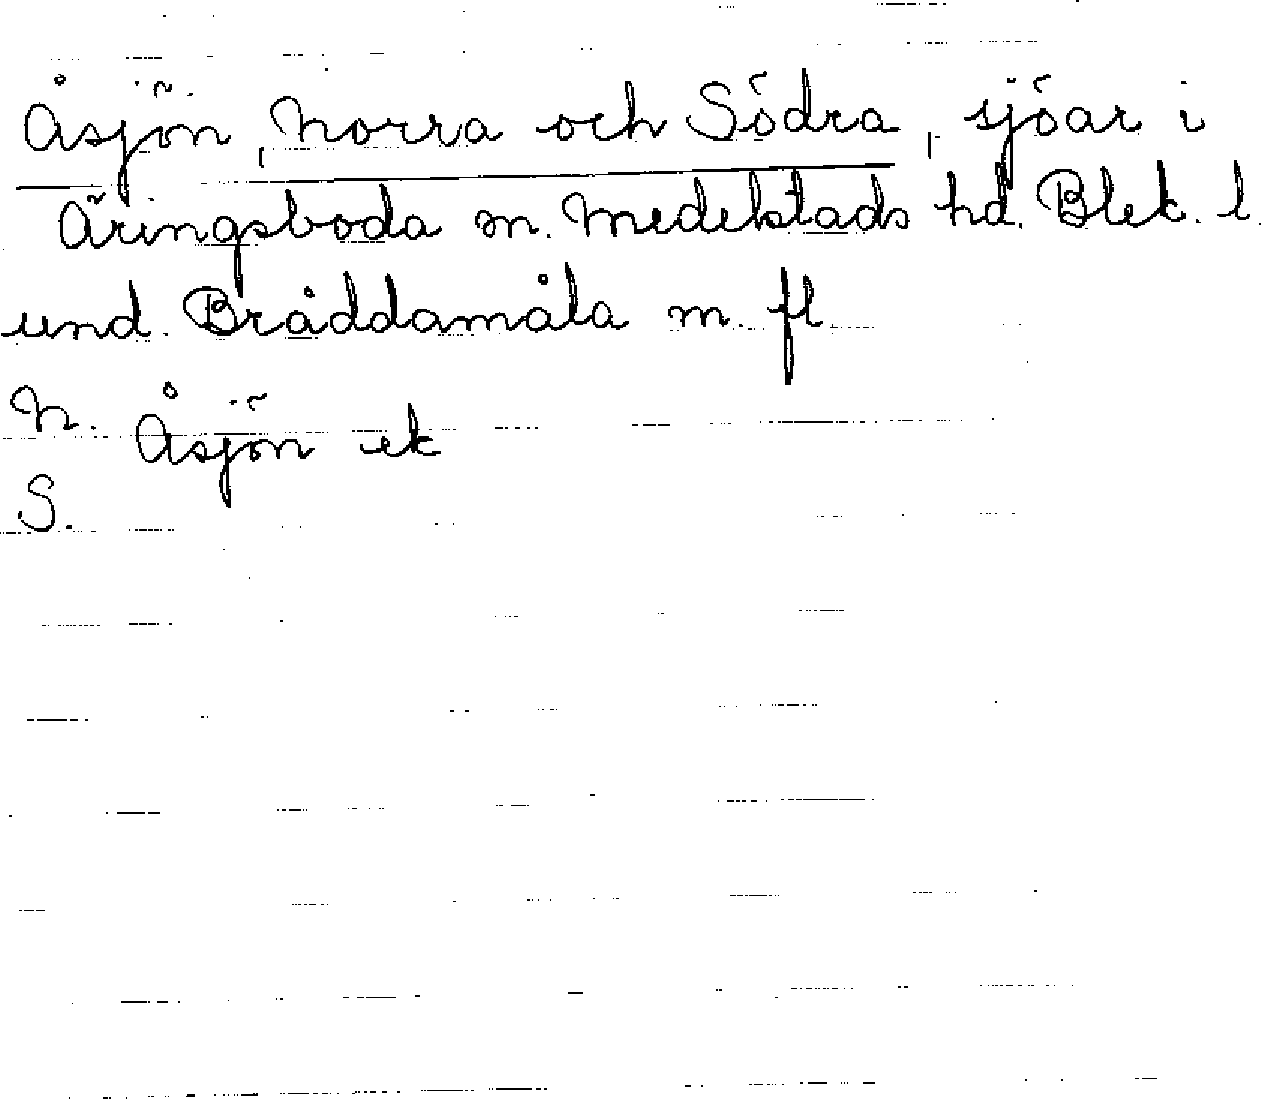 Åsjön, Norra och Södra, sjöar i
Äringsboda m. Medelstads hd. Blek. l.
und. Bråddamåla m. fl
N. Åsjön ek
S.